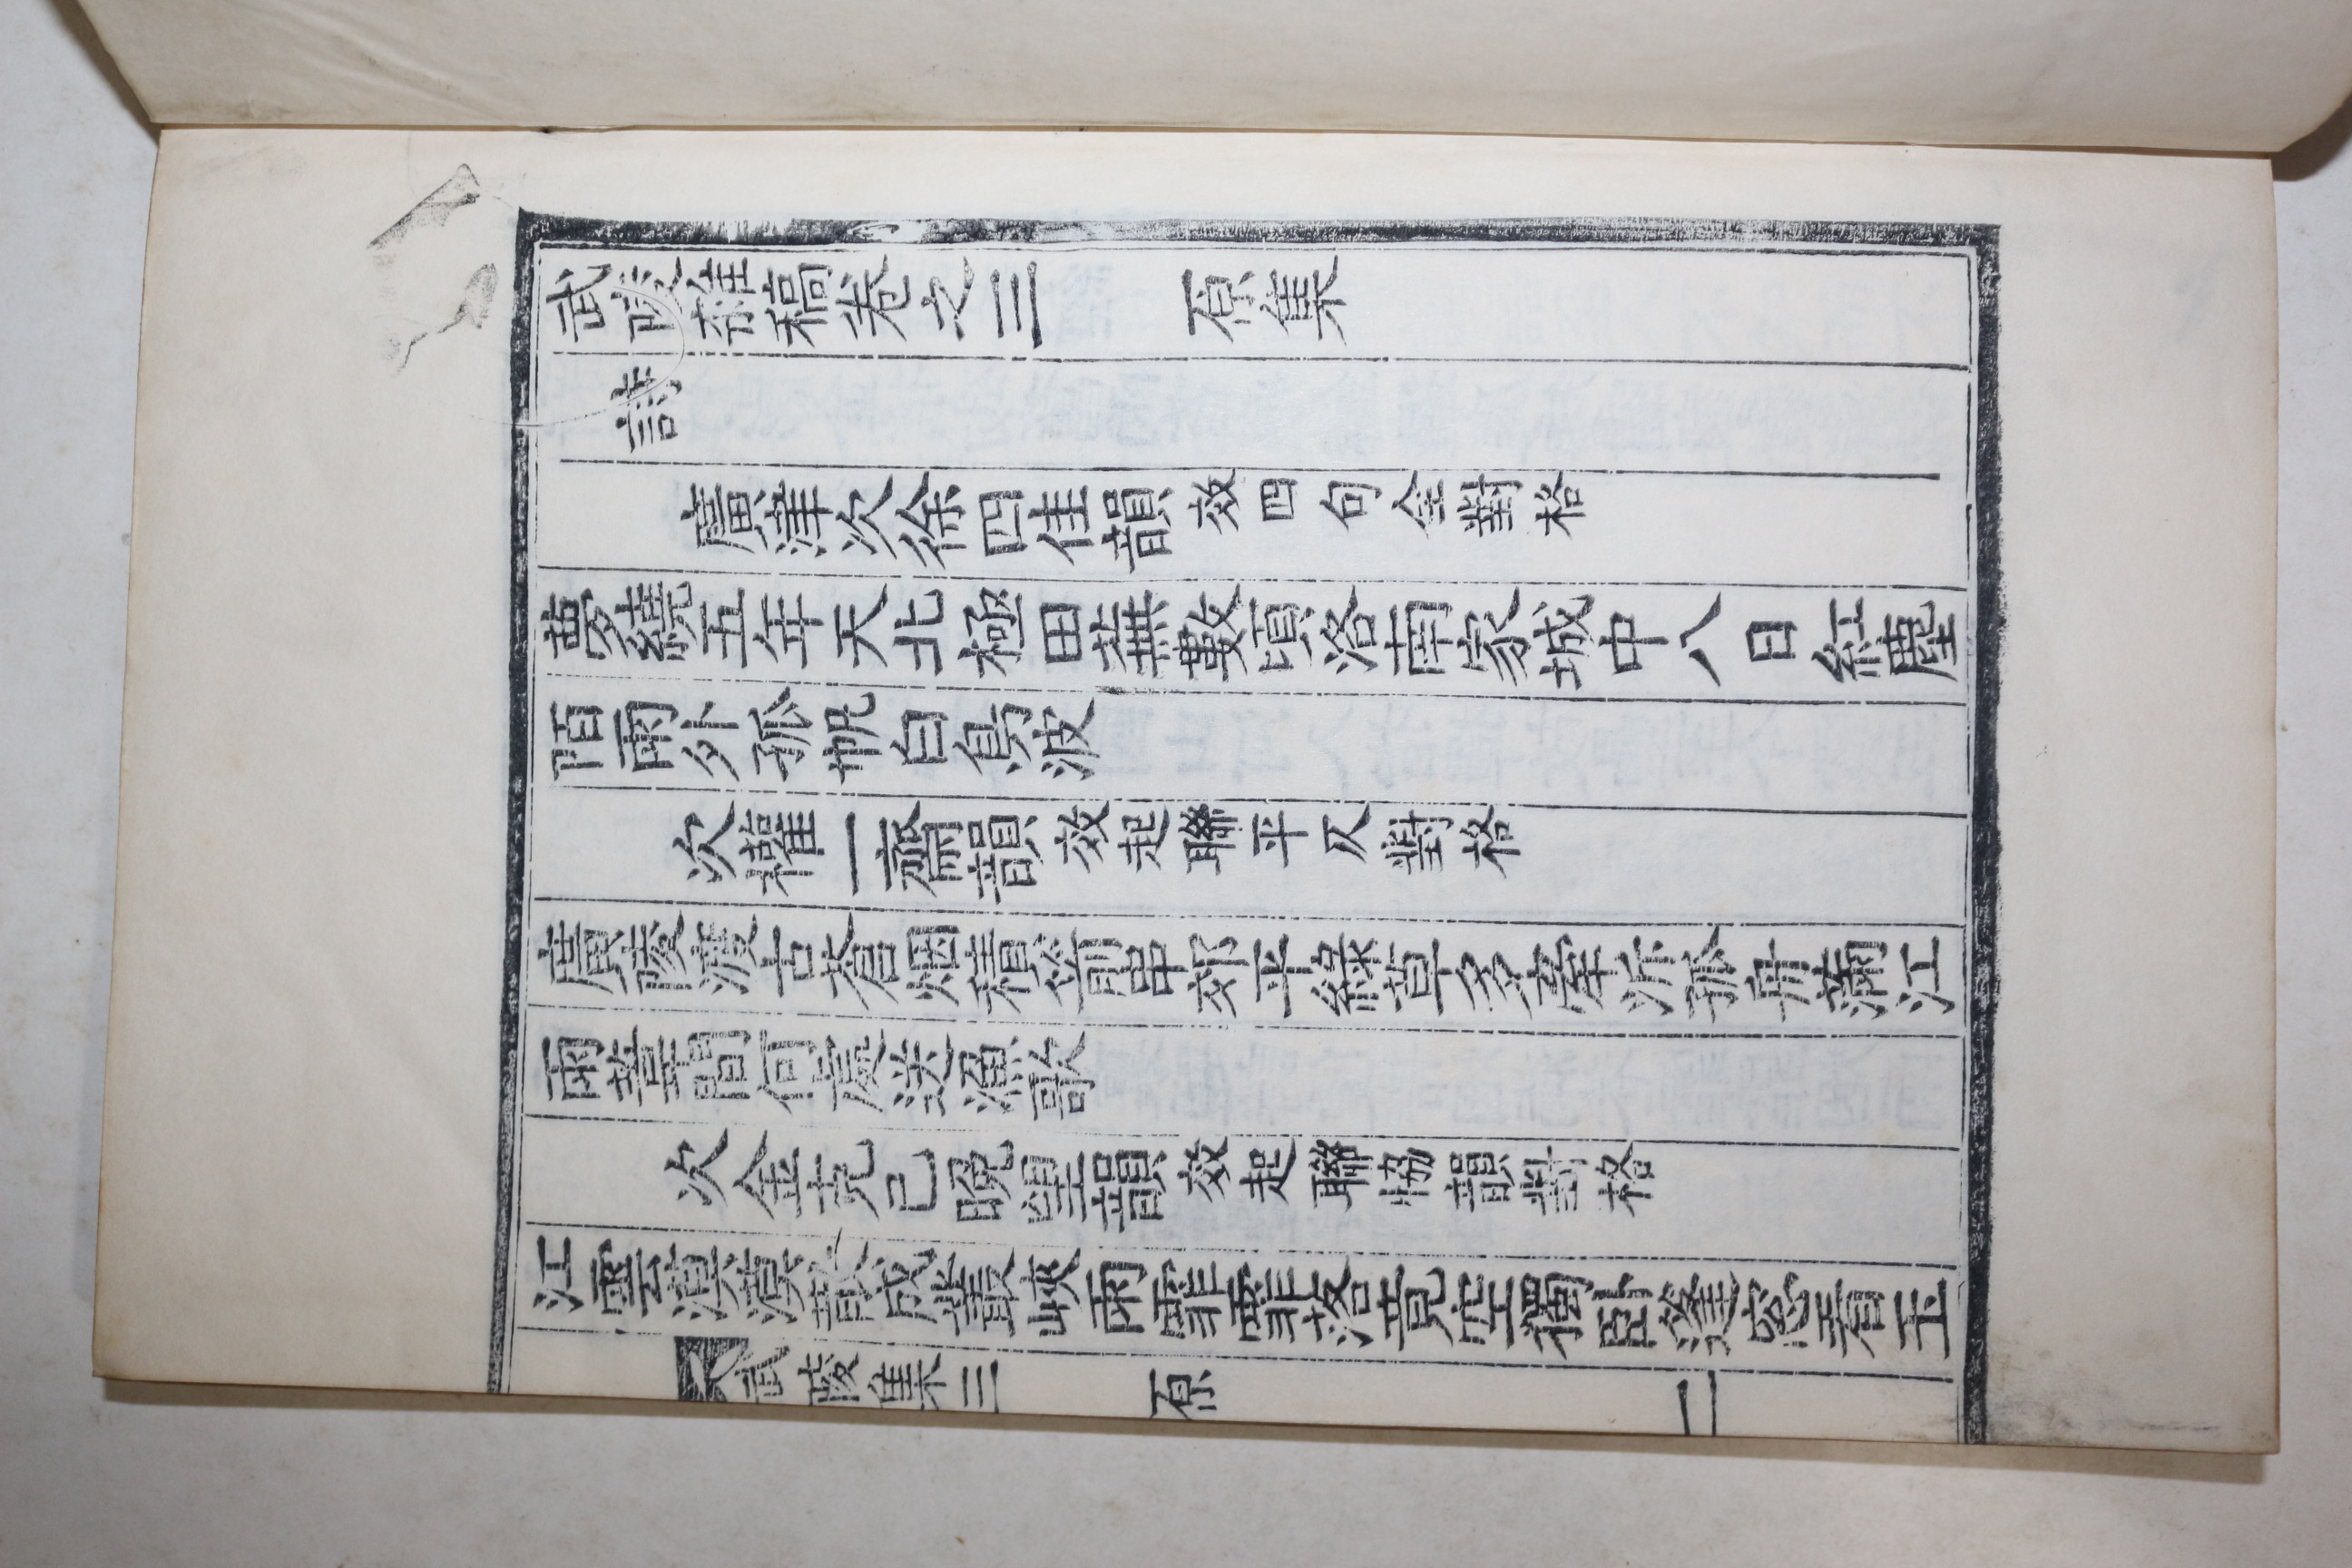 武陵雜稿卷之三　原集
詩
廣津次徐四佳韻效四句全對格
夢繞五年天北極田蕪數頃洛南家城中八日紅塵
陌雨外孤帆白鳥波
次權一齋韻效起聯平仄對格
廣陵渡古蒼烟積箭串郊平綠草多牽泝孤舟滿江
雨葦間何處送漁歌
次金克己晩望韻效起聯恊韻對格
江雲漠漠散成叢峽雨霏霏落竟空獨臥篷窓看玉
武陵集三　原　二